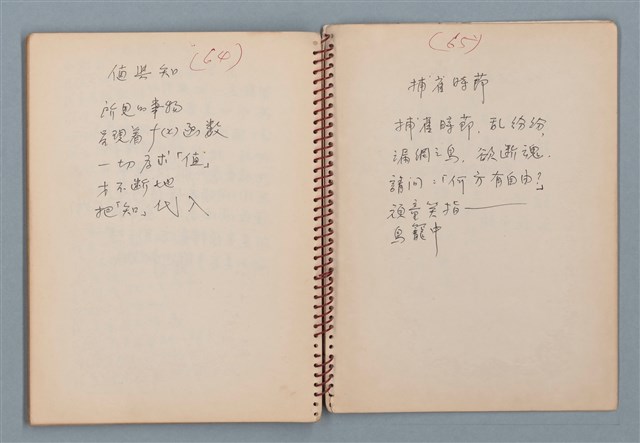 (64)
值與知
所見的事物
呈現着f(x)函数
一切為求「值」
才不断地
把「知」代入
(65)
捕雀時節
捕雀時節、乱纷纷、
漏網之鳥、欲断魂.
請問:「何方有自由?」
頑童笑指——
鳥籠中